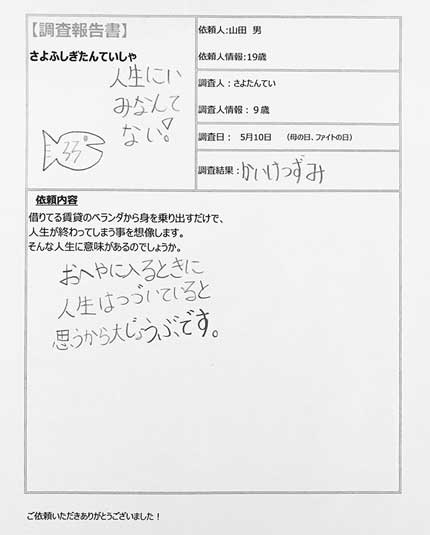 【調査報告書】
さよふしぎたんていしゃ
人生にい
みなんて
ない!
33
依頼人:山田 男
依頼人情報:19歳
調査人:さよたんてい
調査人情報:9歳
調査日: 5月10日 (母の日、ファイトの日)
調査結果:かいけつずみ
依頼内容
借りてる賃貸のベランダから身を乗り出すだけで、
人生が終わってしまう事を想像します。
そんな人生に意味があるのでしょうか。
おへやに入るときに
人生はつづいていると
思うから大じょうぶです。
ご依頼いただきありがとうございました!